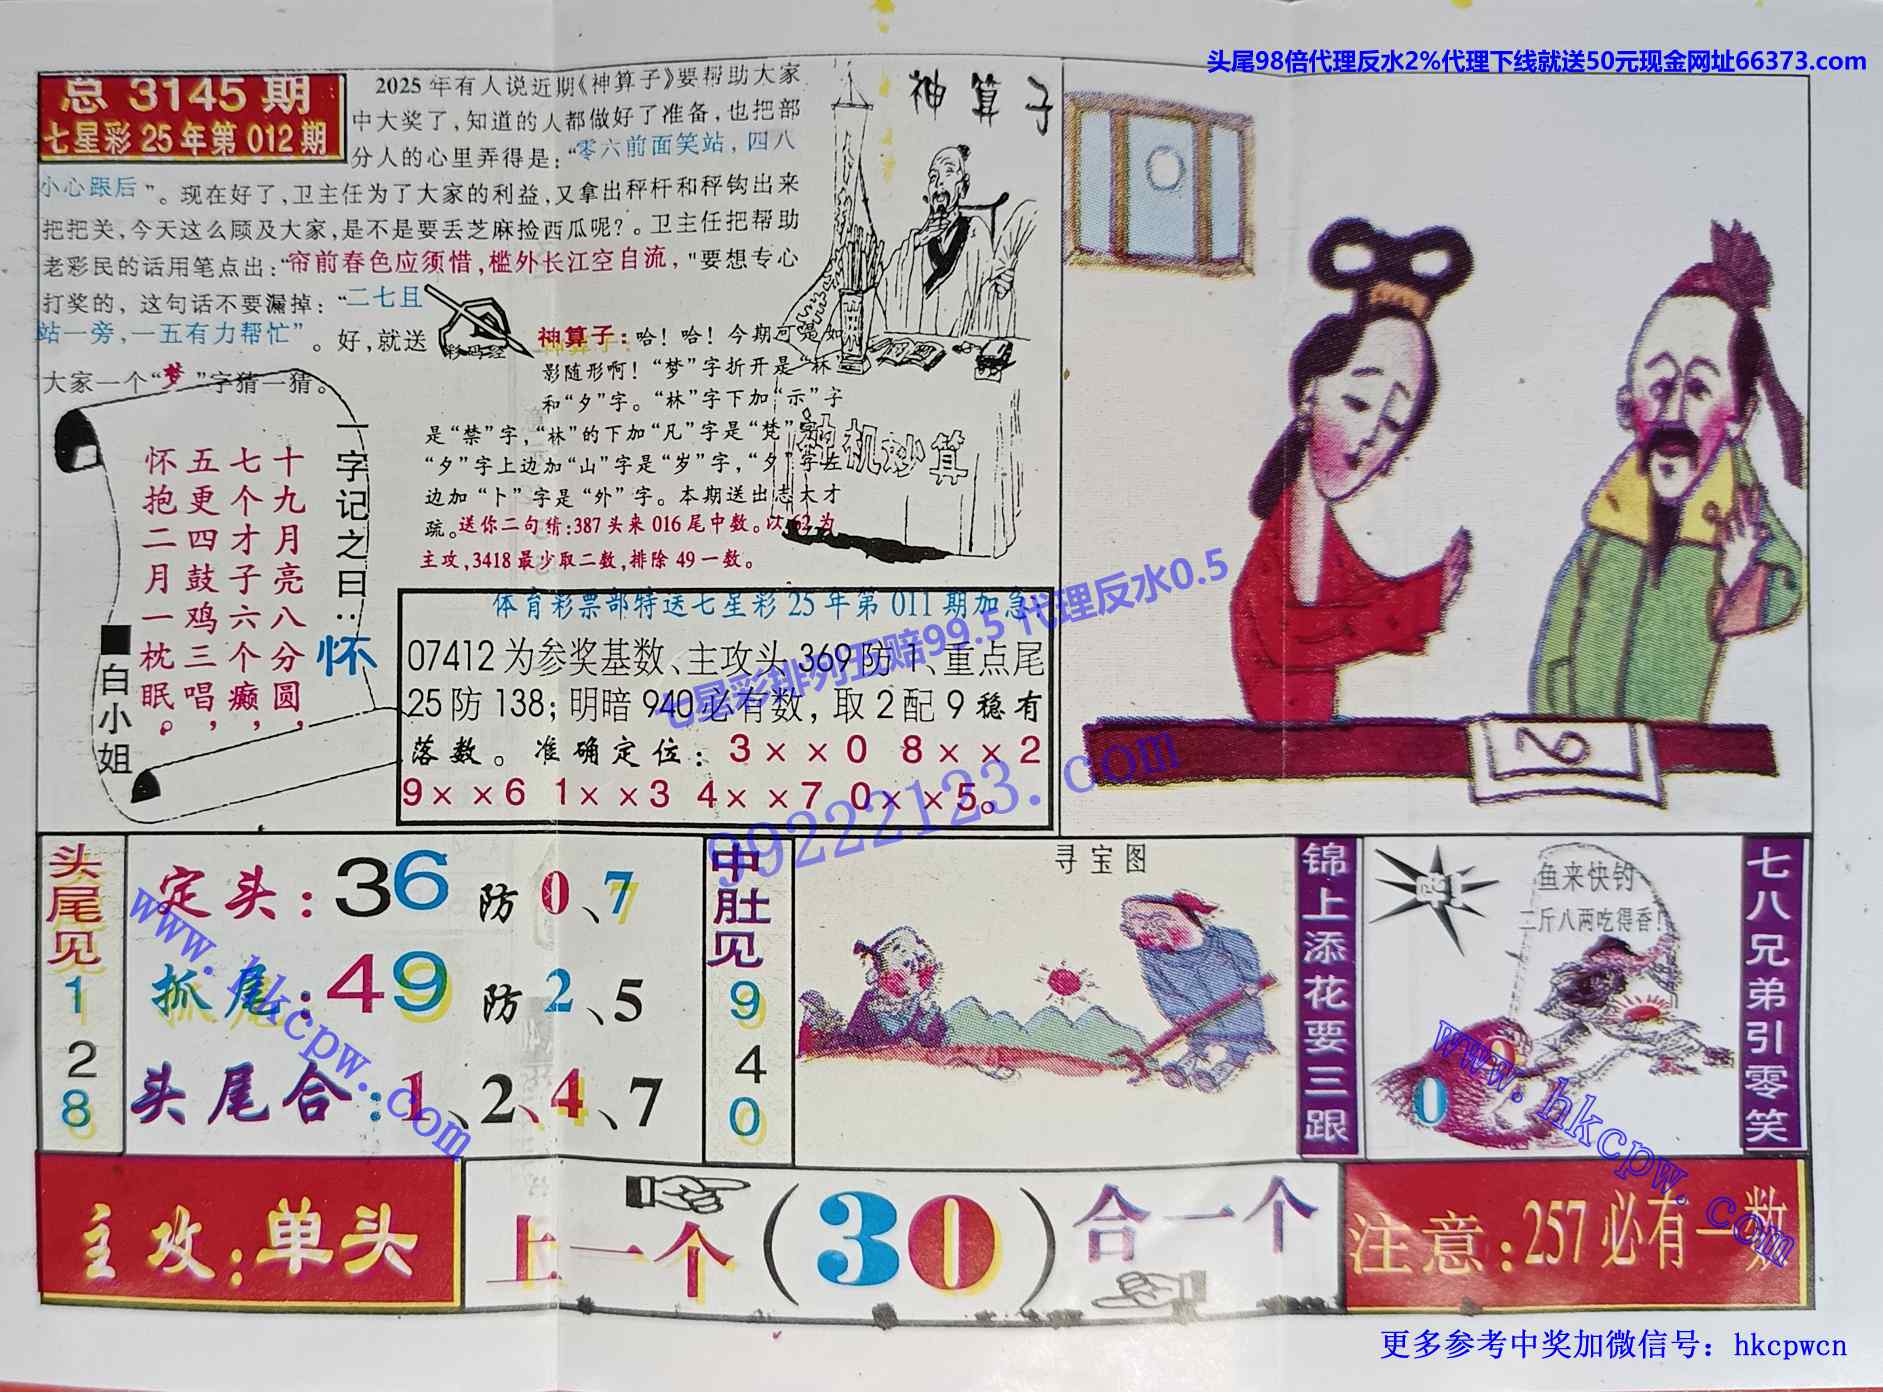 头尾98倍代理反水2%代理下线就送50元现金网址66373.com
总 3145 期
七星彩 25 年第 012 期
2025 年有人说近期《神算子》要帮助大家
中大奖了，知道的人都做好了准备，也把部
分人的心里弄得是：“零六前面笑站，四八
小心跟后”。现在好了，卫主任为了大家的利益，又拿出秤杆和秤钩出来
把把关，今天这么顾及大家，是不是要丢芝麻捡西瓜呢？。卫主任把帮助
老彩民的话用笔点出：“帘前春色应须惜，槛外长江空自流，"要想专心
打奖的，这句话不要漏掉：“二七且
站一旁，一五有力帮忙”。好，就送
大家一个“梦”字猜一猜。
彩码经
神算子
神算子：哈！哈！今期可是如
影随形啊！“梦”字折开是“林”
和“夕”字。“林”字下加“示”字
是“禁”字，“林”的下加“凡”字是“梵”字
“夕”字上边加“山”字是“岁”字，“夕”字左
边加“卜”字是“外”字。本期送出志大才
疏。送你二句猜:387头来 016 尾中数。以 62 为
主攻，3418 最少取二数，排除 49 一数。
神机妙算
一字记之曰：怀
十九月亮八分圆，
七个才子六个癫，
五更四鼓鸡三唱，
怀抱二月一枕眠。
■白小姐
体育彩票部特送七星彩 25 年第 011 期加急
07412 为参奖基数、主攻头 369 防 1、重点尾
25 防 138；明暗 940 必有数，取 2 配 9 稳有
落数。准确定位：3××0 8××2
9××6 1××3 4××7 0××5。
七星彩排列五赔99.5 代理反水0.5
99222123.com
头尾见
1
2
8
定头：36 防 0、7
抓尾：49 防 2、5
头尾合：1、2、4、7
中肚见
9
4
0
寻宝图
锦上添花要三跟
鱼来快钓
二斤八两吃得香！
0
七八兄弟引零笑
www.hkcpw.com
www.hkcpw.com
主攻：单头
上一个（30）合一个
注意：257 必有一数
更多参考中奖加微信号：hkcpwcn